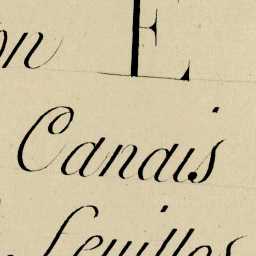 on E
Canais
feuilles